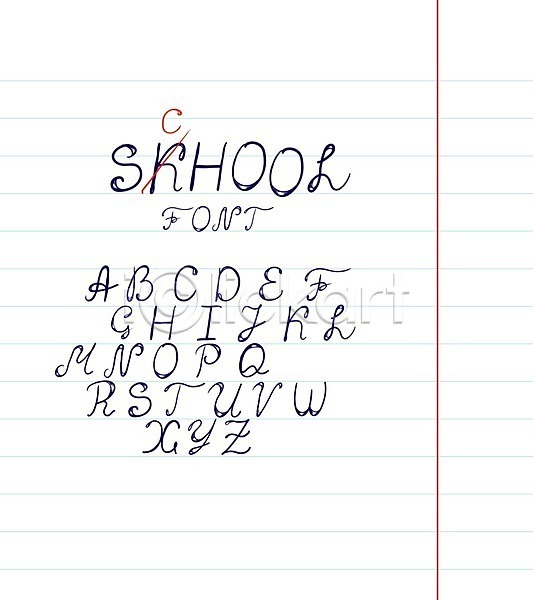 C
SKHOOL
FONT
A B C D E F
G H I J K L
M N O P Q
R S T U V W
X Y Z
iclickart